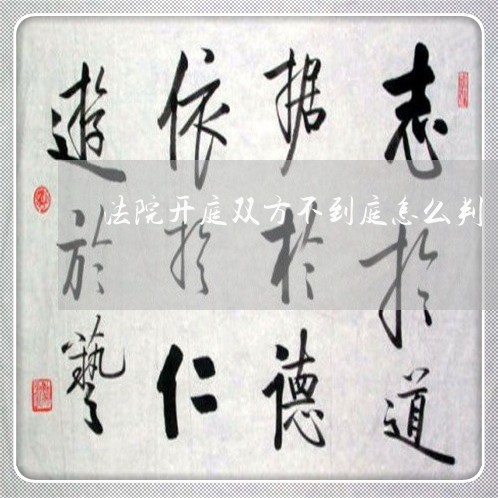 志於道
据於德
依於仁
遊於藝
法院开庭双方不到庭怎么判